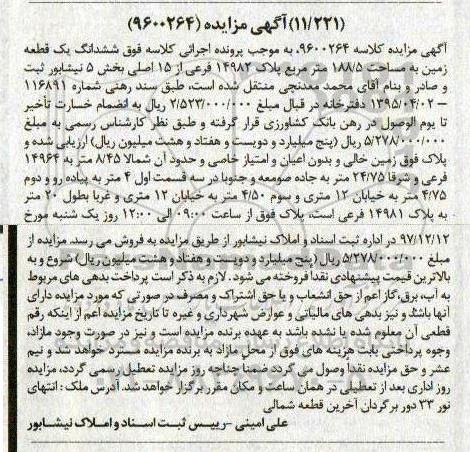 (۱۱/۲۲۱) آگهی مزایده (۹۶۰۰۲۶۴)
آگهی مزایده کلاسه ۹۶۰۰۲۶۴، به موجب پرونده اجرائی کلاسه فوق ششدانگ یک قطعه
زمین به مساحت ۱۸۸/۵ متر مربع پلاک ۱۴۹۸۲ فرعی از ۱۵ اصلی بخش ۵ نیشابور ثبت
و صادر و بنام آقای محمد معدنچی منتقل شده است، طبق سند رهنی شماره ۱۱۶۸۹۱
– ۱۳۹۵/۰۴/۰۲ دفترخانه در قبال مبلغ ۲/۵۲۳/۰۰۰/۰۰۰ ریال به انضمام خسارت تأخیر
تا یوم الوصول در رهن بانک کشاورزی قرار گرفته و طبق نظر کارشناس رسمی به مبلغ
۵/۲۷۸/۰۰۰/۰۰۰ ریال (پنج میلیارد و دویست و هفتاد و هشت میلیون ریال) ارزیابی شده و
پلاک فوق زمین خالی و بدون اعیان و امتیاز خاصی و حدود آن شمالا ۸/۴۵ متر به ۱۴۹۶۴
فرعی و شرقا ۲۴/۷۵ متر به جاده صومعه و جنوبا در سه قسمت اول ۴ متر به پیاده رو و دوم
۴/۷۵ متر به خیابان ۱۲ متری و سوم ۴/۵۰ متر به خیابان ۱۲ متری و غربا بطول ۲۰ متر
به پلاک ۱۴۹۸۱ فرعی است، پلاک فوق از ساعت ۰۹:۰۰ الی ۱۲:۰۰ روز یک شنبه مورخ
۹۷/۱۲/۱۲ در اداره ثبت اسناد و املاک نیشابور از طریق مزایده به فروش می رسد. مزایده از
مبلغ ۵/۲۷۸/۰۰۰/۰۰۰ ریال (پنج میلیارد و دویست و هفتاد و هشت میلیون ریال) شروع و به
بالاترین قیمت پیشنهادی نقدا فروخته می شود . لازم به ذکر است پرداخت بدهی های مربوط
به آب، برق، گاز اعم از حق انشعاب و یا حق اشتراک و مصرف در صورتی که مورد مزایده دارای
آنها باشد و نیز بدهی های مالیاتی و عوارض شهرداری و غیره تا تاریخ مزایده اعم از اینکه رقم
قطعی آن معلوم شده یا نشده باشد به عهده برنده مزایده است و نیز در صورت وجود مازاد،
وجوه پرداختی بابت هزینه های فوق از محل مازاد به برنده مزایده مسترد خواهد شد و نیم
عشر و حق مزایده نقدا وصول می گردد ضمنا چنانچه روز مزایده تعطیل رسمی گردد، مزایده
روز اداری بعد از تعطیلی در همان ساعت و مکان مقرر برگزار خواهد شد. آدرس ملک : انتهای
نور ۳۳ دور برگردان آخرین قطعه شمالی
علی امینی -رییس ثبت اسناد و املاک نیشابور